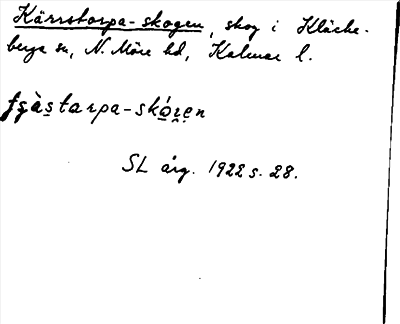 Kärrstorpa-skogen, skog i Kläcke-
berga sn, N. Möre hd, Kalmar l.
SL årg. 1922 s. 28.